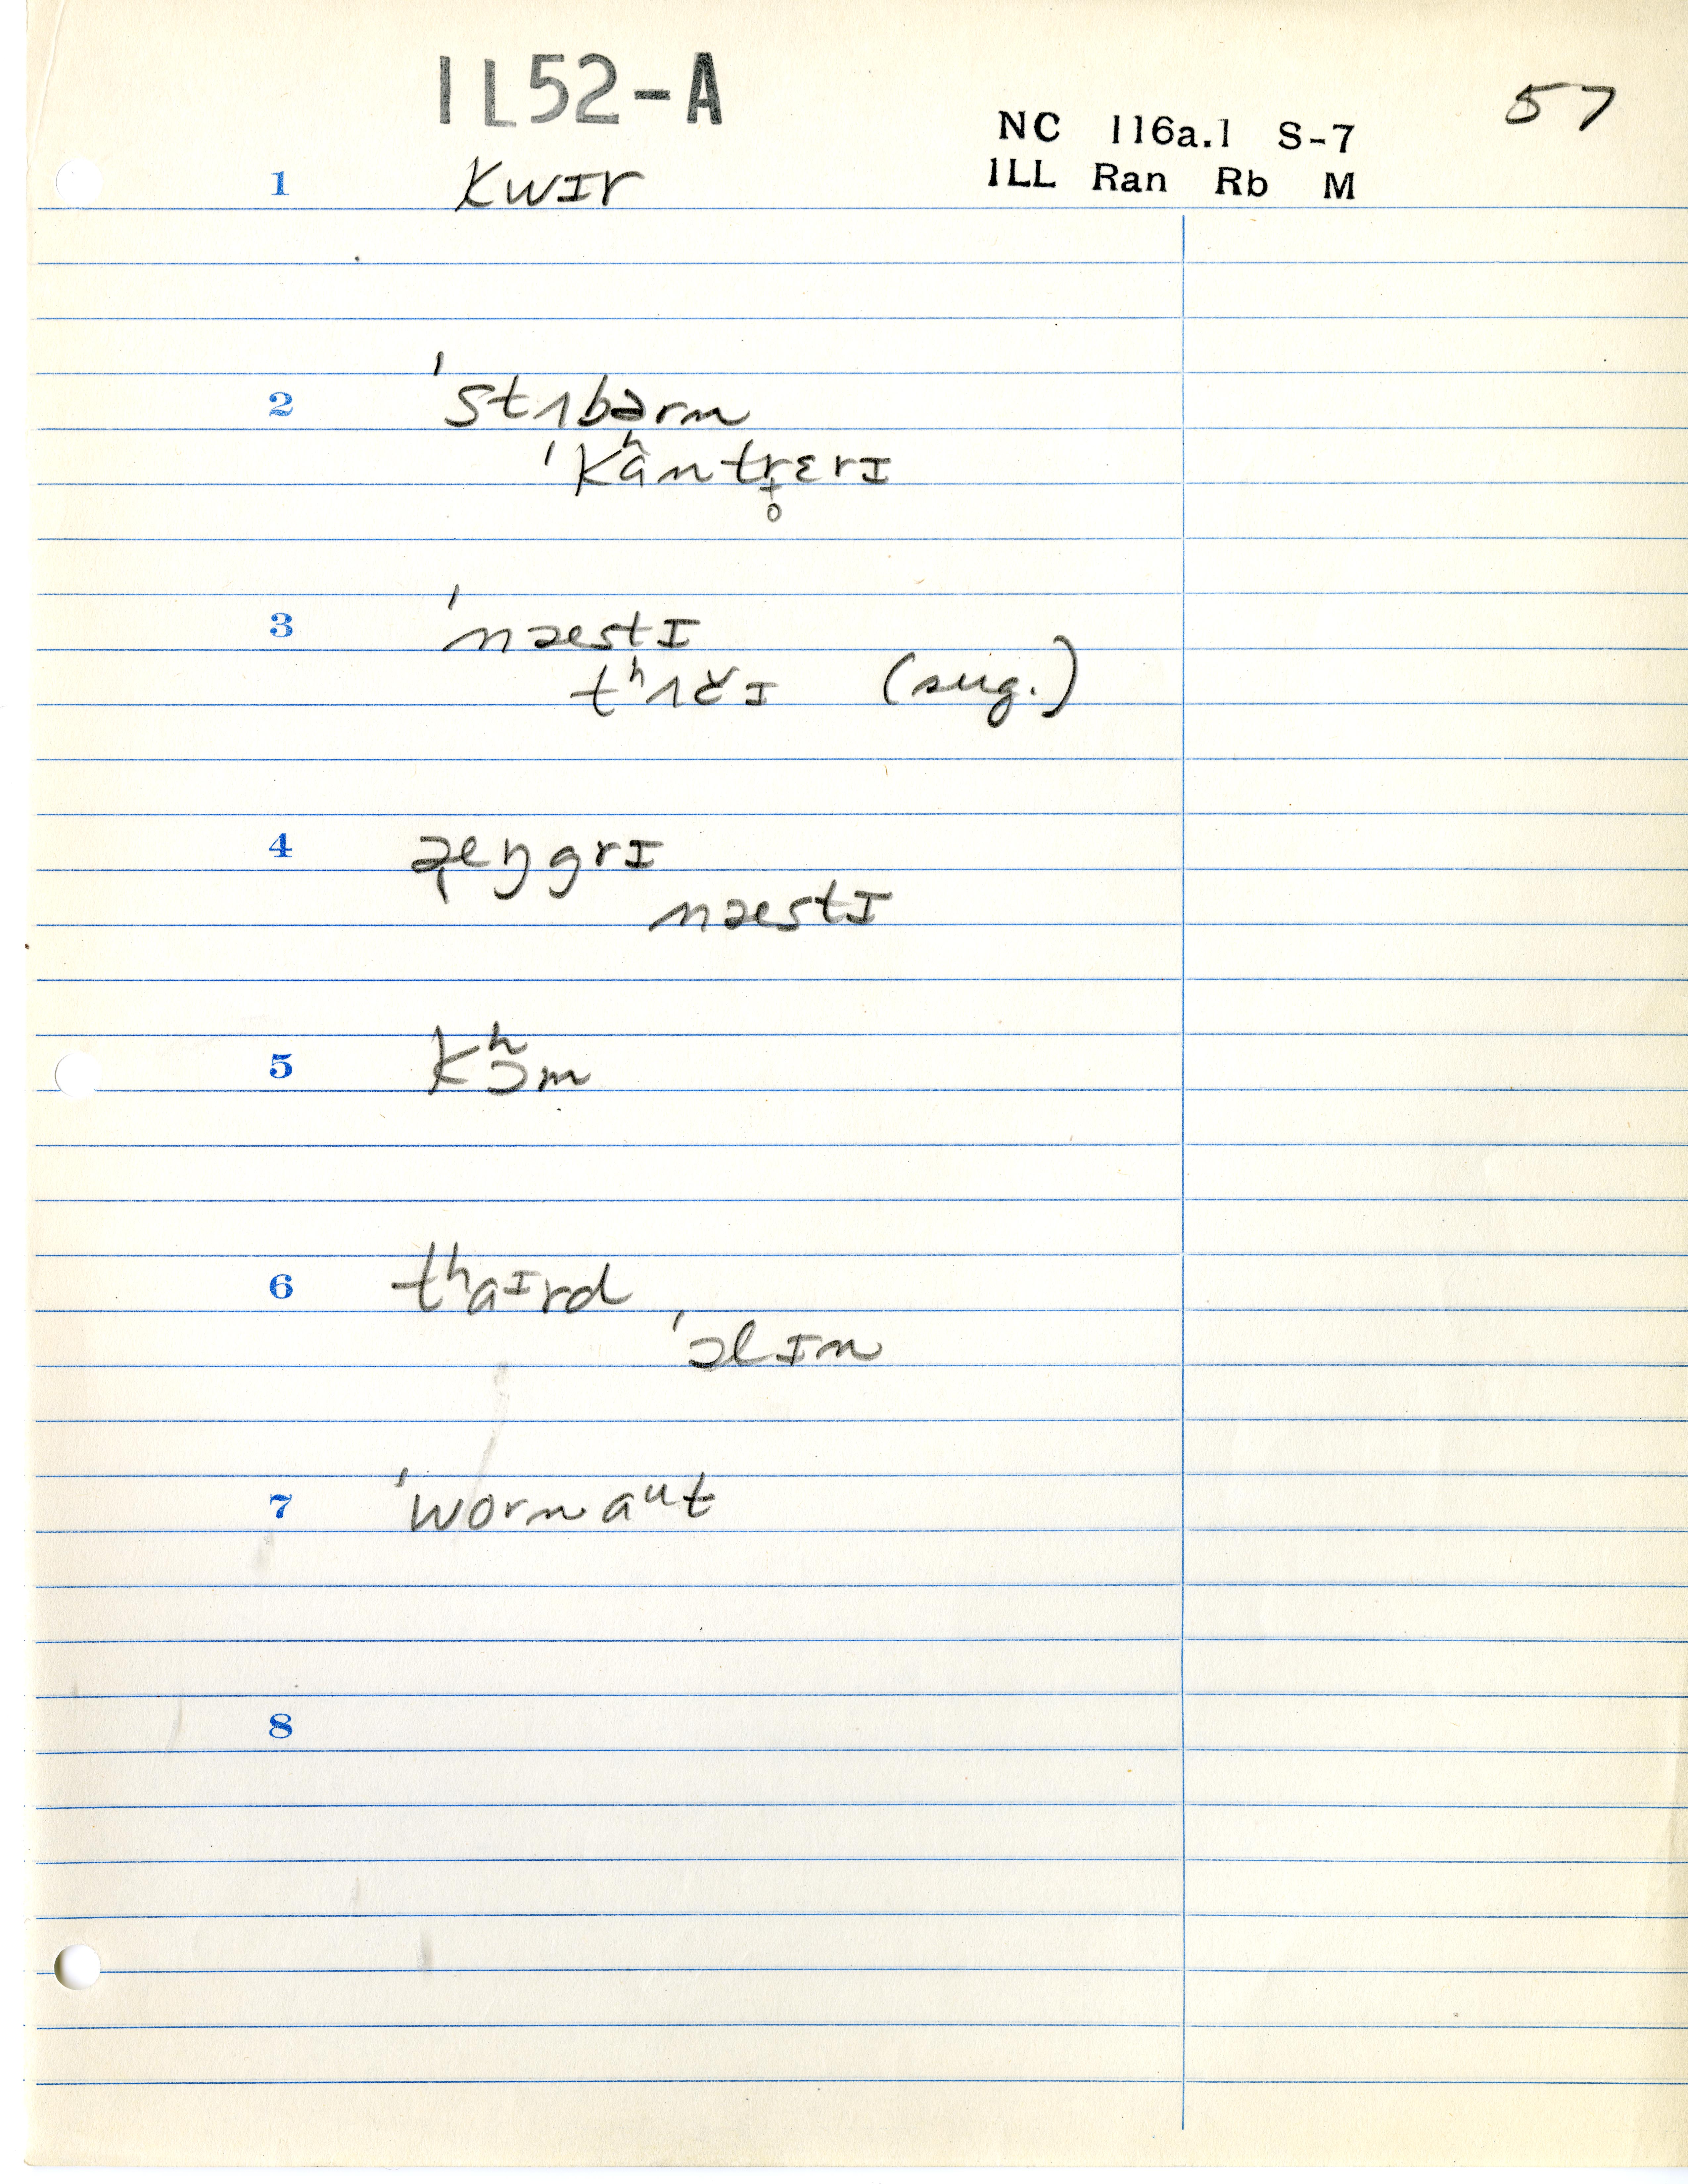 IL52-A
57
NC 116a.1 S-7
ILL Ran Rb M
1 kwɪr
2 'stʌbərn
'kʰɑntr̥ɛrɪ
3 'næstɪ
tʰʌčɪ (sug.)
4 æŋgrɪ
næstɪ
5 kʰɔm
6 tʰaɪrd
'ɔlɪn
7 'wornaut
8